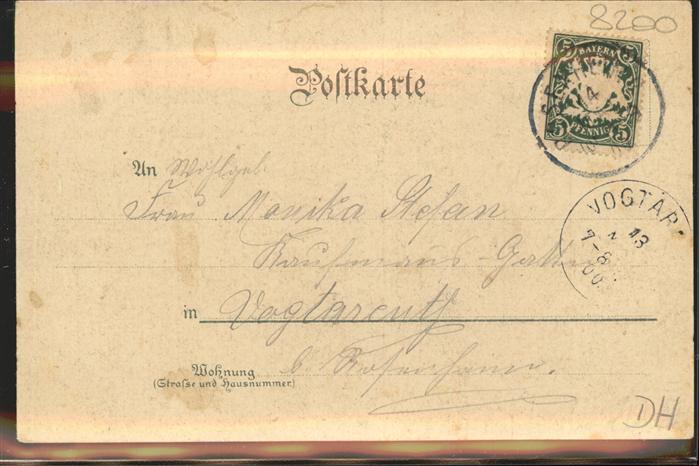 8200
5 BAYERN 5
5 PFENNIG 5
4
Postkarte
VOGTAR
7-8
00
An Wohlgeb.
Frau Monika Stefan
Kaufmanns-Gattin
in Vogtareuth
b. Rosenheim.
Wohnung
(Strasse und Hausnummer)
DH